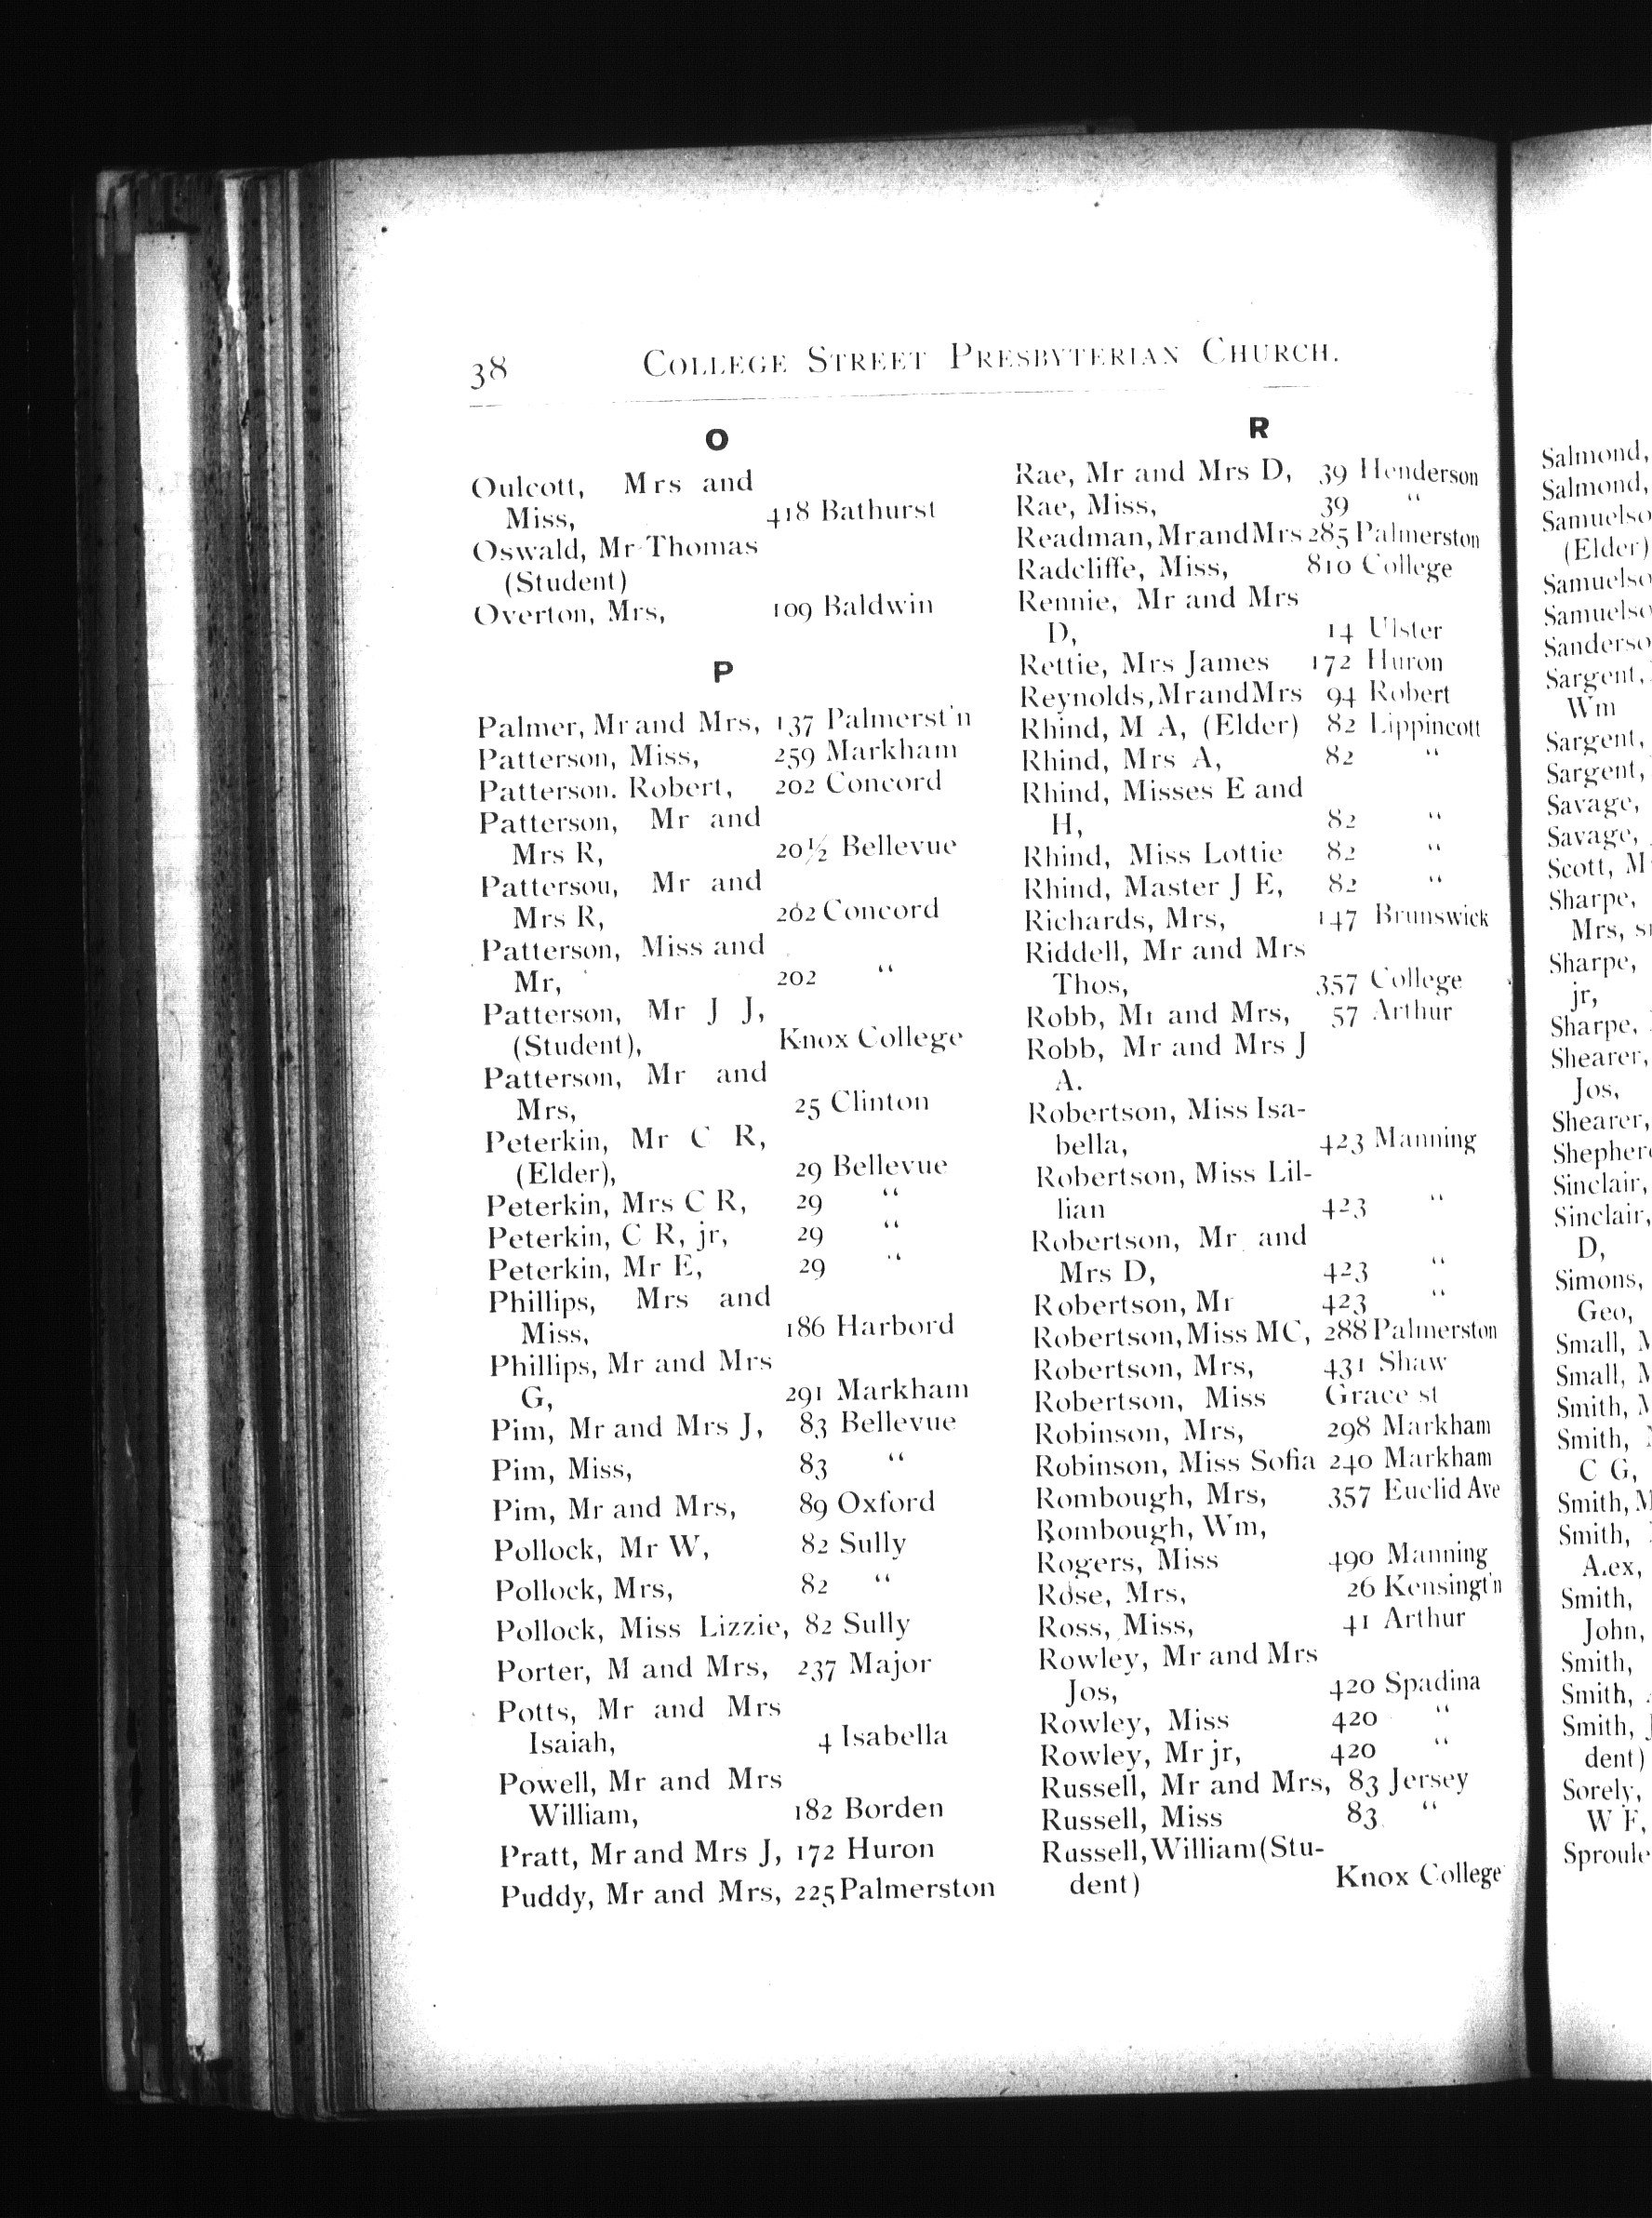 38 COLLEGE STREET PRESBYTERIAN CHURCH.
O
Oulcott, Mrs and
Miss, 418 Bathurst
Oswald, Mr Thomas
(Student)
Overton, Mrs, 109 Baldwin
P
Palmer, Mr and Mrs, 137 Palmerst'n
Patterson, Miss, 259 Markham
Patterson. Robert, 202 Concord
Patterson, Mr and
Mrs R, 20½ Bellevue
Pattersou, Mr and
Mrs R, 202 Concord
Patterson, Miss and
Mr, 202 “
Patterson, Mr J J,
(Student), Knox College
Patterson, Mr and
Mrs, 25 Clinton
Peterkin, Mr C R,
(Elder), 29 Bellevue
Peterkin, Mrs C R, 29 “
Peterkin, C R, jr, 29 “
Peterkin, Mr E, 29 “
Phillips, Mrs and
Miss, 186 Harbord
Phillips, Mr and Mrs
G, 291 Markham
Pim, Mr and Mrs J, 83 Bellevue
Pim, Miss, 83 “
Pim, Mr and Mrs, 89 Oxford
Pollock, Mr W, 82 Sully
Pollock, Mrs, 82 “
Pollock, Miss Lizzie, 82 Sully
Porter, M and Mrs, 237 Major
Potts, Mr and Mrs
Isaiah, 4 Isabella
Powell, Mr and Mrs
William, 182 Borden
Pratt, Mr and Mrs J, 172 Huron
Puddy, Mr and Mrs, 225 Palmerston
R
Rae, Mr and Mrs D, 39 Henderson
Rae, Miss, 39 “
Readman, Mr and Mrs 285 Palmerston
Radcliffe, Miss, 810 College
Rennie, Mr and Mrs
D, 14 Ulster
Rettie, Mrs James 172 Huron
Reynolds, Mr and Mrs 94 Robert
Rhind, M A, (Elder) 82 Lippincott
Rhind, Mrs A, 82 “
Rhind, Misses E and
H, 82 “
Rhind, Miss Lottie 82 “
Rhind, Master J E, 82 “
Richards, Mrs, 147 Brunswick
Riddell, Mr and Mrs
Thos, 357 College
Robb, Mr and Mrs, 57 Arthur
Robb, Mr and Mrs J
A.
Robertson, Miss Isa-
bella, 423 Manning
Robertson, Miss Lil-
lian 423 “
Robertson, Mr and
Mrs D, 423 “
Robertson, Mr 423 “
Robertson, Miss MC, 288 Palmerston
Robertson, Mrs, 431 Shaw
Robertson, Miss Grace st
Robinson, Mrs, 298 Markham
Robinson, Miss Sofia 240 Markham
Rombough, Mrs, 357 Euclid Ave
Rombough, Wm,
Rogers, Miss 490 Manning
Rose, Mrs, 26 Kensingt'n
Ross, Miss, 41 Arthur
Rowley, Mr and Mrs
Jos, 420 Spadina
Rowley, Miss 420 “
Rowley, Mr jr, 420 “
Russell, Mr and Mrs, 83 Jersey
Russell, Miss 83 “
Russell, William (Stu-
dent) Knox College
Salmond,
Salmond,
Samuelso
(Elder)
Samuelso
Samuelso
Sanderso
Sargent,
Wm
Sargent,
Sargent,
Savage,
Savage,
Scott, M
Sharpe,
Mrs, s
Sharpe,
jr,
Sharpe,
Shearer,
Jos,
Shearer,
Shepher
Sinclair,
Sinclair,
D,
Simons,
Geo,
Small, M
Small, M
Smith, M
Smith,
C G,
Smith, M
Smith,
A.ex,
Smith,
John,
Smith,
Smith,
Smith, J
dent)
Sorely,
W F,
Sproule